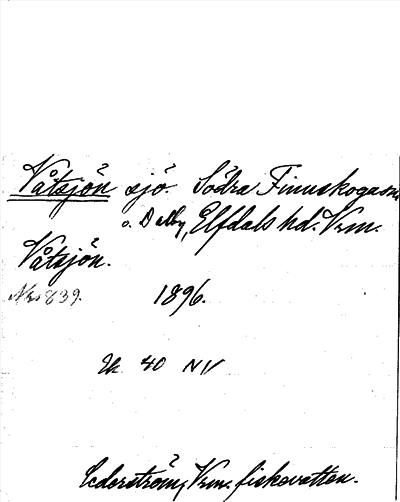 Våtsjön sjö. Södra Finnskogarna
o. Dalby, Elfdals hd. Vrm.
Våtsjön.
839. 1896.
40 NV
Cederström, Vrm. fiskevatten.